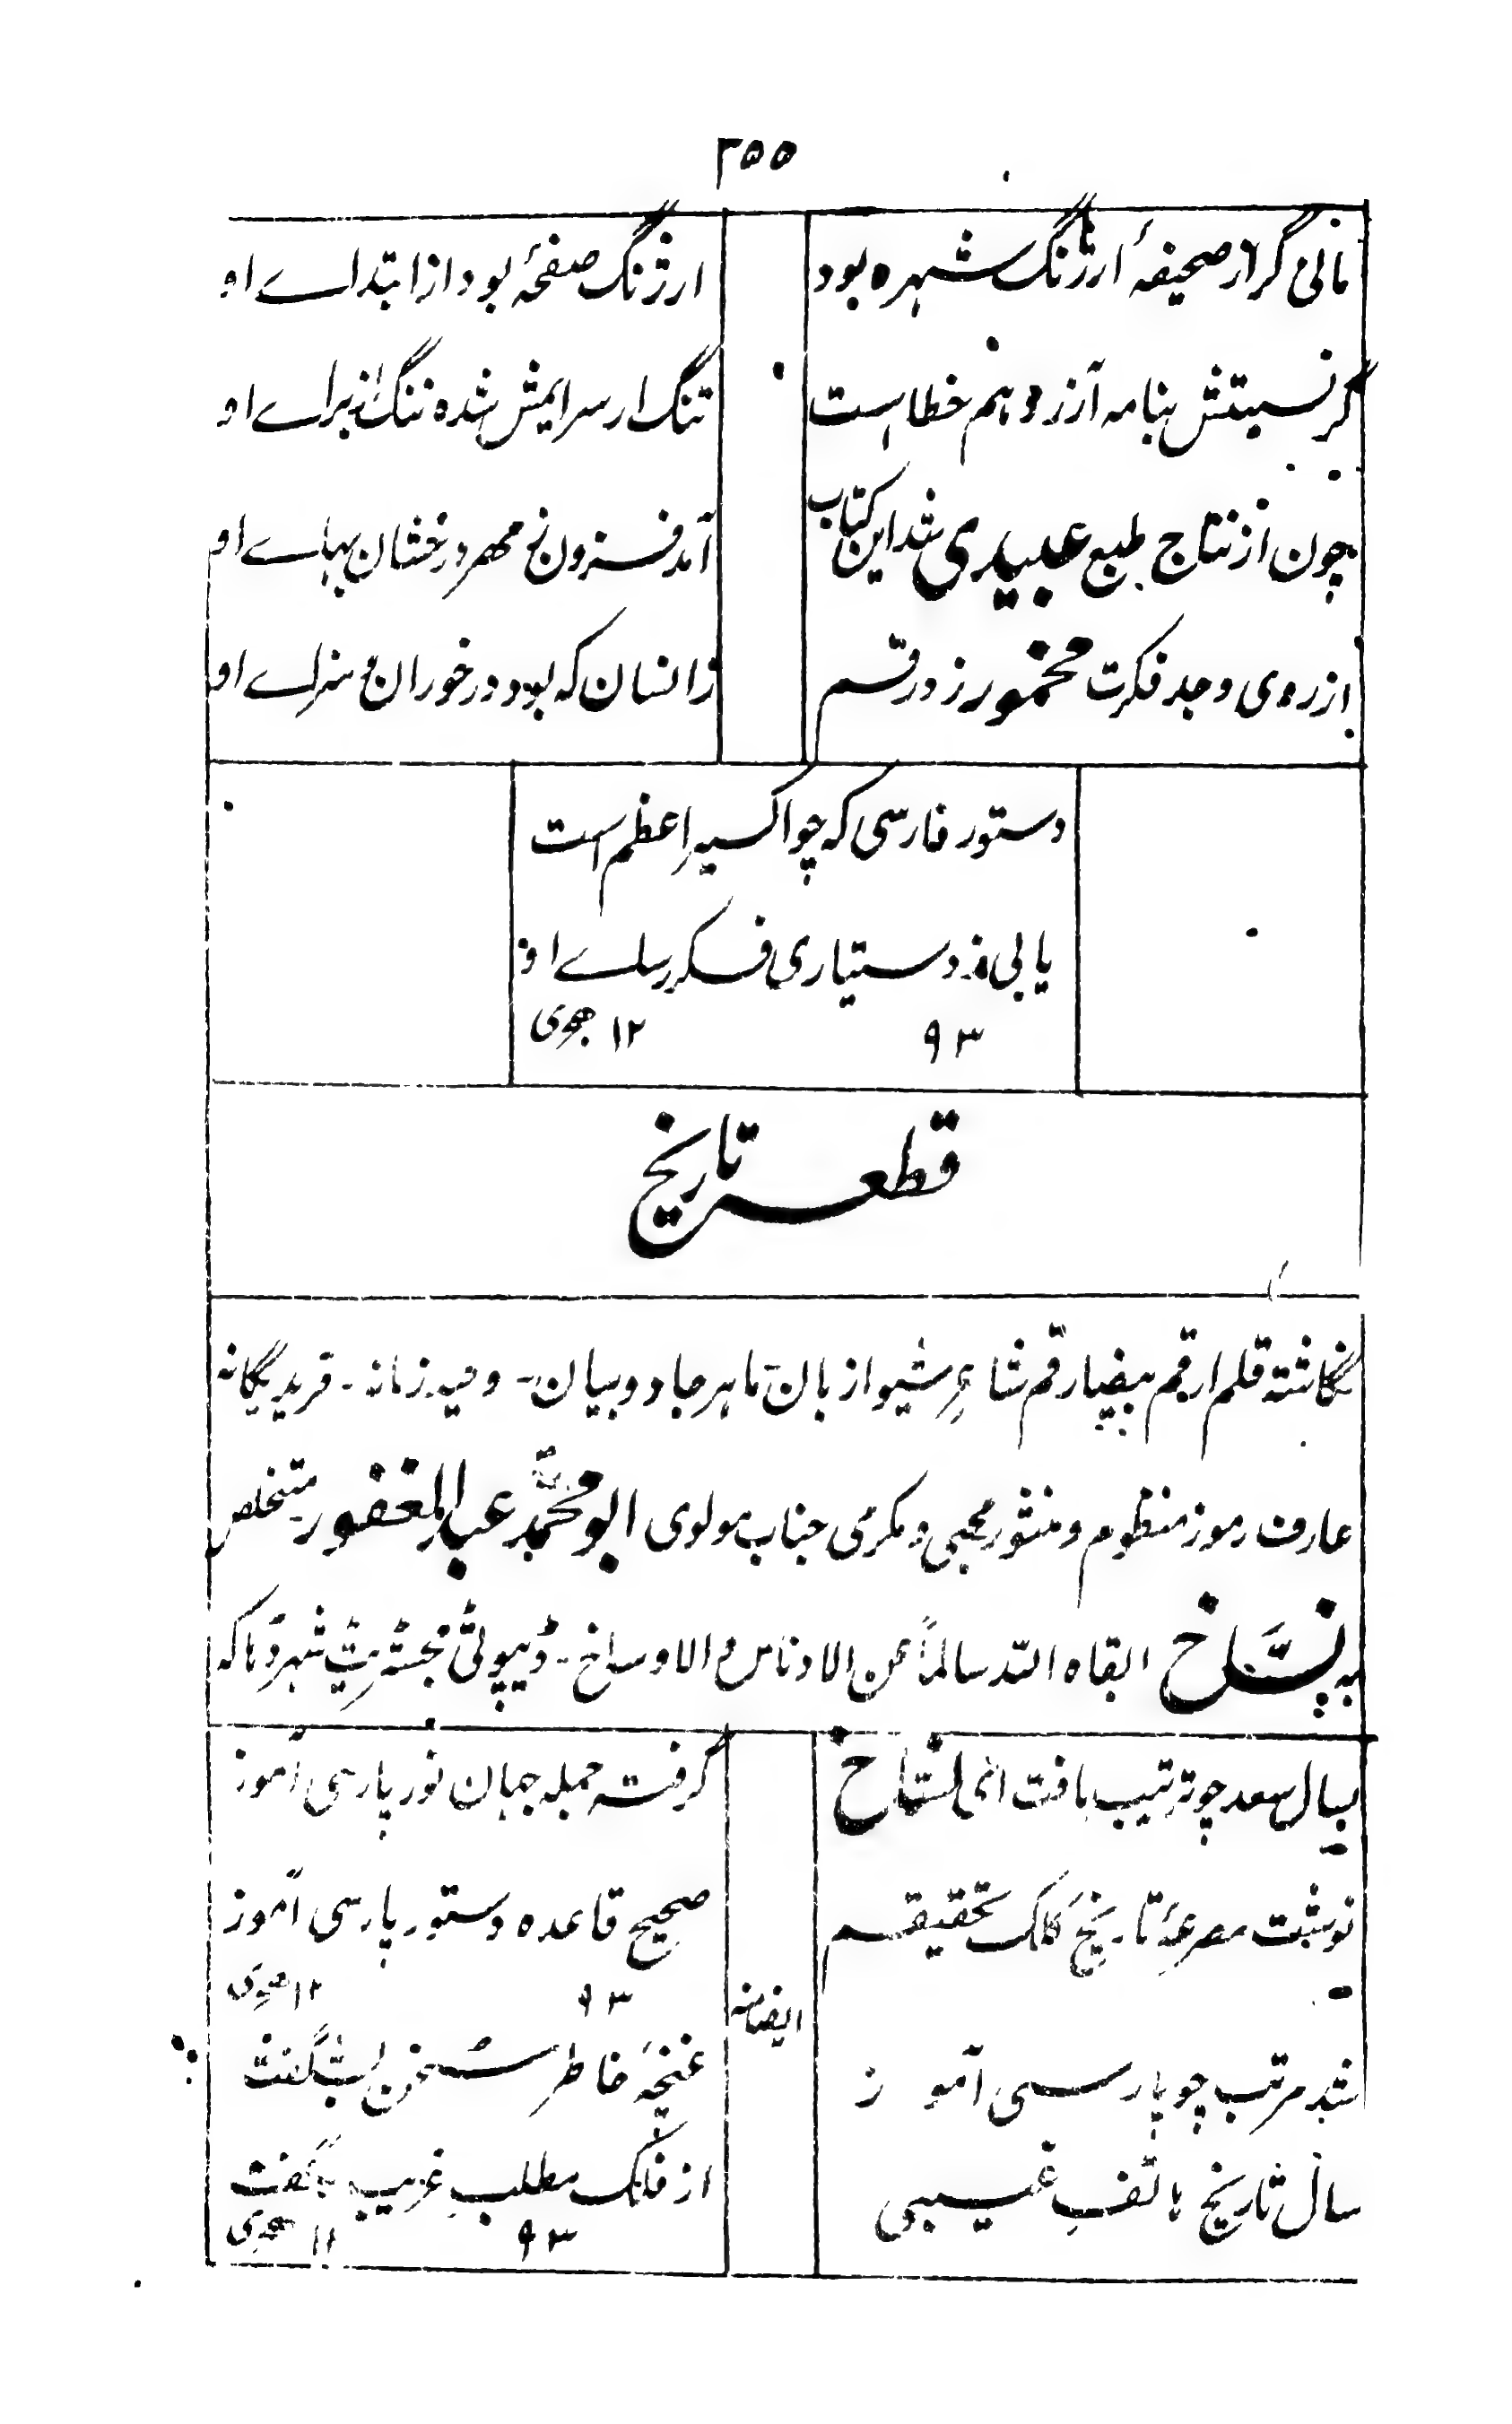 ۲۵۵
مانی گر از صحیفهٔ ارژنگ شهره بود
ارژنگ صفحهٔ بود از ابتداے او
گر نسبتش بنامه آرزو هم خطاست
تنگ ار سرایمش شده ننگ از براے او
چون از نتاج طبع عبیدی شد این کتاب
آمد فزون ز مهر درخشان بهاے او
از روی وجد فکرت مخمور زد رقم
زانسان که بود درخور ان و سزاے او
دستور فارسی که چو اکسیر اعظم است
یابی ز دستیاری فکر رساے او
۹۳ ۱۲ هجری
قطعه تاریخ
نگاشته قلم ارقم بیضا رقم شاعرِ شیوا زبان ماهر جادو بیان - وحید زمانه - فرید یگانه
عارف رموز منظوم و منثور محبی و مکرمی جناب مولوی ابو محمّد عبدالغفور متخلص
به نسّاخ ابقاه الله سالماً عن الادناس و الاوساخ - ڈیپوٹی مجسٹریٹ شهر ڈهاکه
بسال سعد چو ترتیب یافت ای نسّاخ
گرفت جمله جهان نور پارسی آموز
نوشت مصرعهٔ تاریخ کلک تحقیقم
صحیح قاعده دستور پارسی آموز
۹۳ ۱۲ هجری
ایضا منه
شد مرتب چو پارسی آموز
غنچهٔ خاطر سخن بشگفت
سال تاریخ هاتف غیبی
از فلک مطلب غریب بگفت
۹۳ ۱۲ هجری